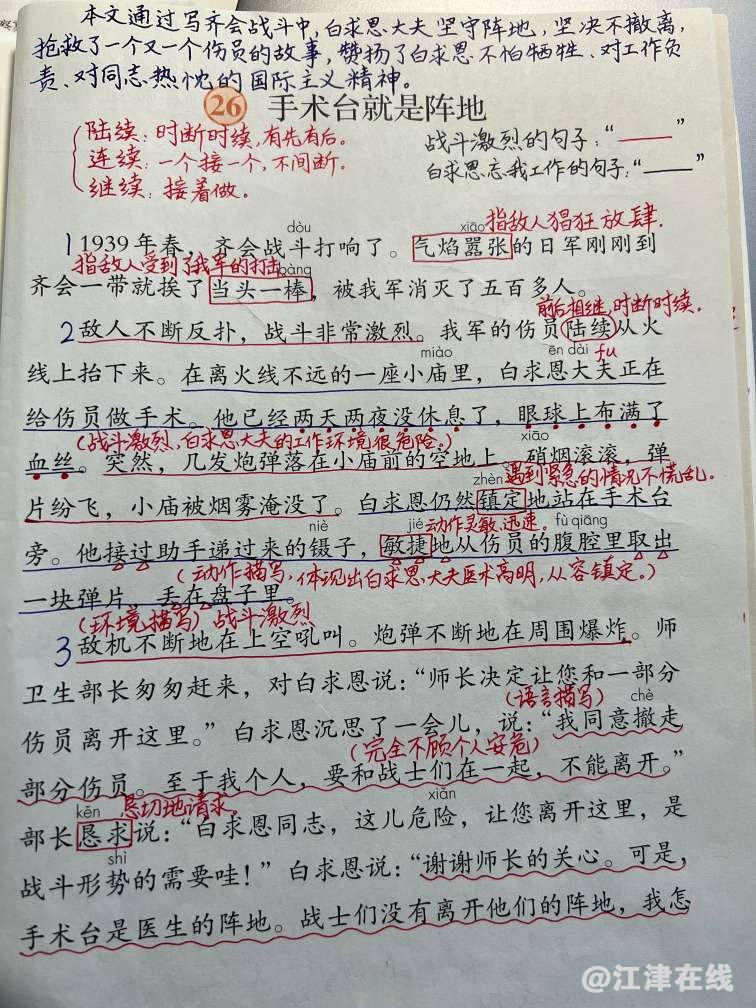 本文通过写齐会战斗中,白求恩大夫坚守阵地,坚决不撤离,
抢救了一个又一个伤员的故事,赞扬了白求恩不怕牺牲、对工作负
责、对同志热忱的国际主义精神。
26 手术台就是阵地
陆续:时断时续,有先有后。
连续:一个接一个,不间断。
继续:接着做。
战斗激烈的句子:“——”
白求恩忘我工作的句子:“——”
指敌人猖狂放肆.
dòu xiāo
1 1939年春,齐会战斗打响了。气焰嚣张的日军刚刚到
指敌人受到了我军的打击 bàng
齐会一带就挨了当头一棒,被我军消灭了五百多人。
前后相继,时断时续.
2 敌人不断反扑,战斗非常激烈。我军的伤员陆续从火
miào ēn dài fu
线上抬下来。在离火线不远的一座小庙里,白求恩大夫正在
给伤员做手术。他已经两天两夜没休息了,眼球上布满了
(战斗激烈,白求恩大夫的工作环境很危险。) xiāo
血丝。突然,几发炮弹落在小庙前的空地上。硝烟滚滚,弹
zhèn 遇到紧急的情况不慌乱.
片纷飞,小庙被烟雾淹没了。白求恩仍然镇定地站在手术台
niè jié 动作灵敏、迅速。 fù qiāng
旁。他接过助手递过来的镊子,敏捷地从伤员的腹腔里取出
(动作描写,体现出白求恩大夫医术高明,从容镇定。)
一块弹片,丢在盘子里。
(环境描写)战斗激烈
3 敌机不断地在上空吼叫。炮弹不断地在周围爆炸。师
卫生部长匆匆赶来,对白求恩说:“师长决定让您和一部分
(语言描写) chè
伤员离开这里。”白求恩沉思了一会儿,说:“我同意撤走
(完全不顾个人安危)
部分伤员。至于我个人,要和战士们在一起,不能离开。”
kěn 恳切地请求. xiǎn
部长恳求说:“白求恩同志,这儿危险,让您离开这里,是
shì
战斗形势的需要哇!”白求恩说:“谢谢师长的关心。可是,
手术台是医生的阵地。战士们没有离开他们的阵地,我怎
@江津在线